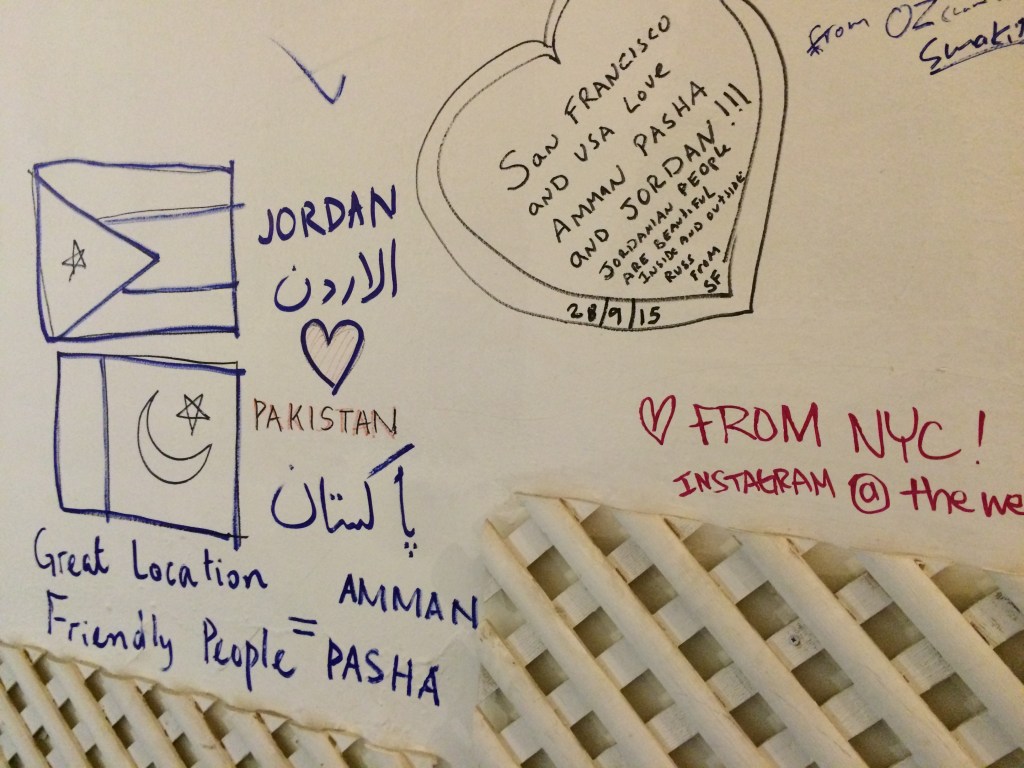 from OZ
SAN FRANCISCO
AND USA LOVE
AMMAN PASHA
AND JORDAN!!!
JORDANIAN PEOPLE
ARE BEAUTIFUL
INSIDE AND OUTSIDE
RUSS FROM
SF
28/9/15
JORDAN
الاردن
PAKISTAN
پاکستان
Great Location
Friendly People = AMMAN
PASHA
♡ FROM NYC!
INSTAGRAM @the